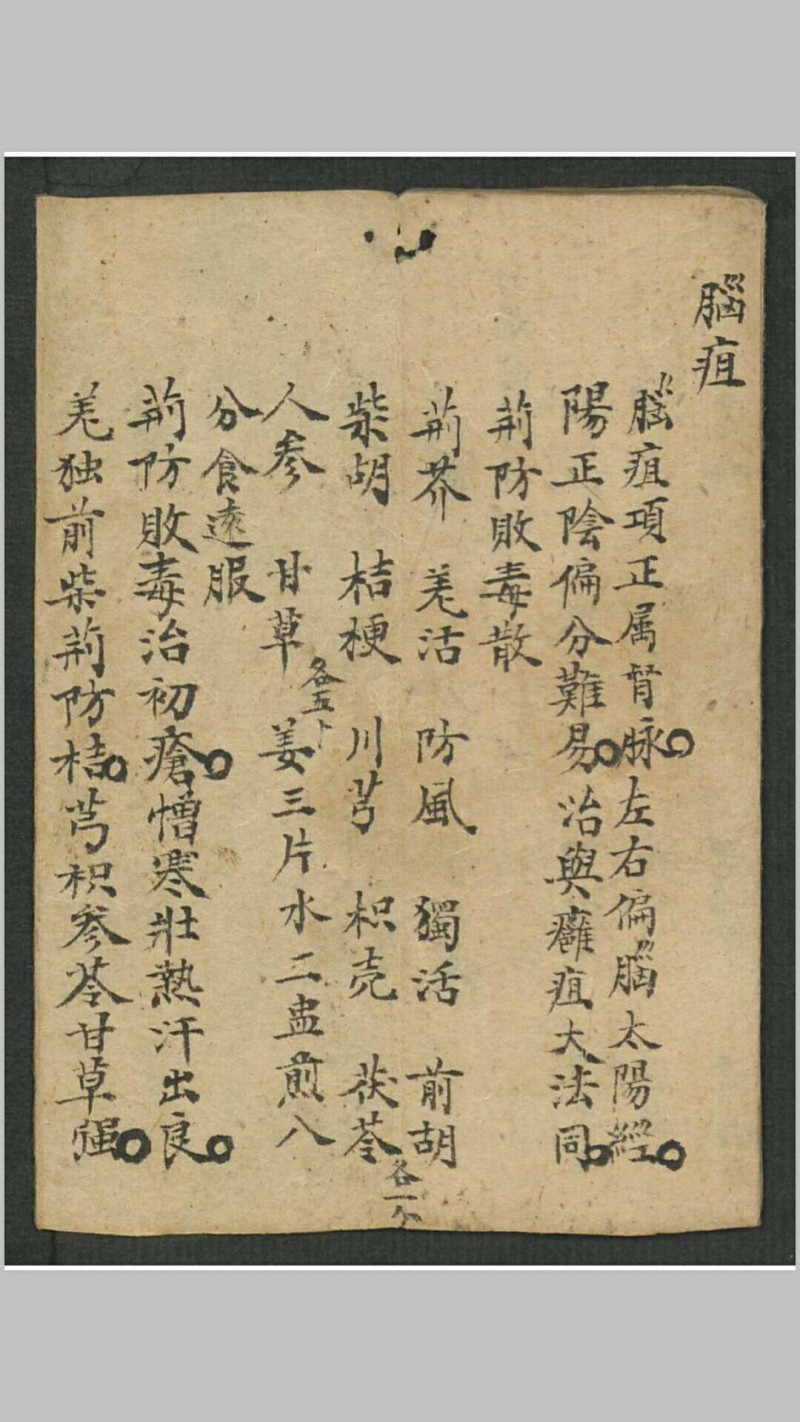 腦疽
腦疽項正属督脉左右偏腦太陽經
陽正陰偏分難易治與癰疽大法同
荊防敗毒散
荊芥 羌活 防風 獨活 前胡
柴胡 桔梗 川芎 枳壳 茯苓各一
人參 甘草各五 姜三片水二盅煎八
分食遠服
荊防敗毒治初瘡憎寒壯熱汗出良
羌独前柴荊防桔芎枳參苓甘草强